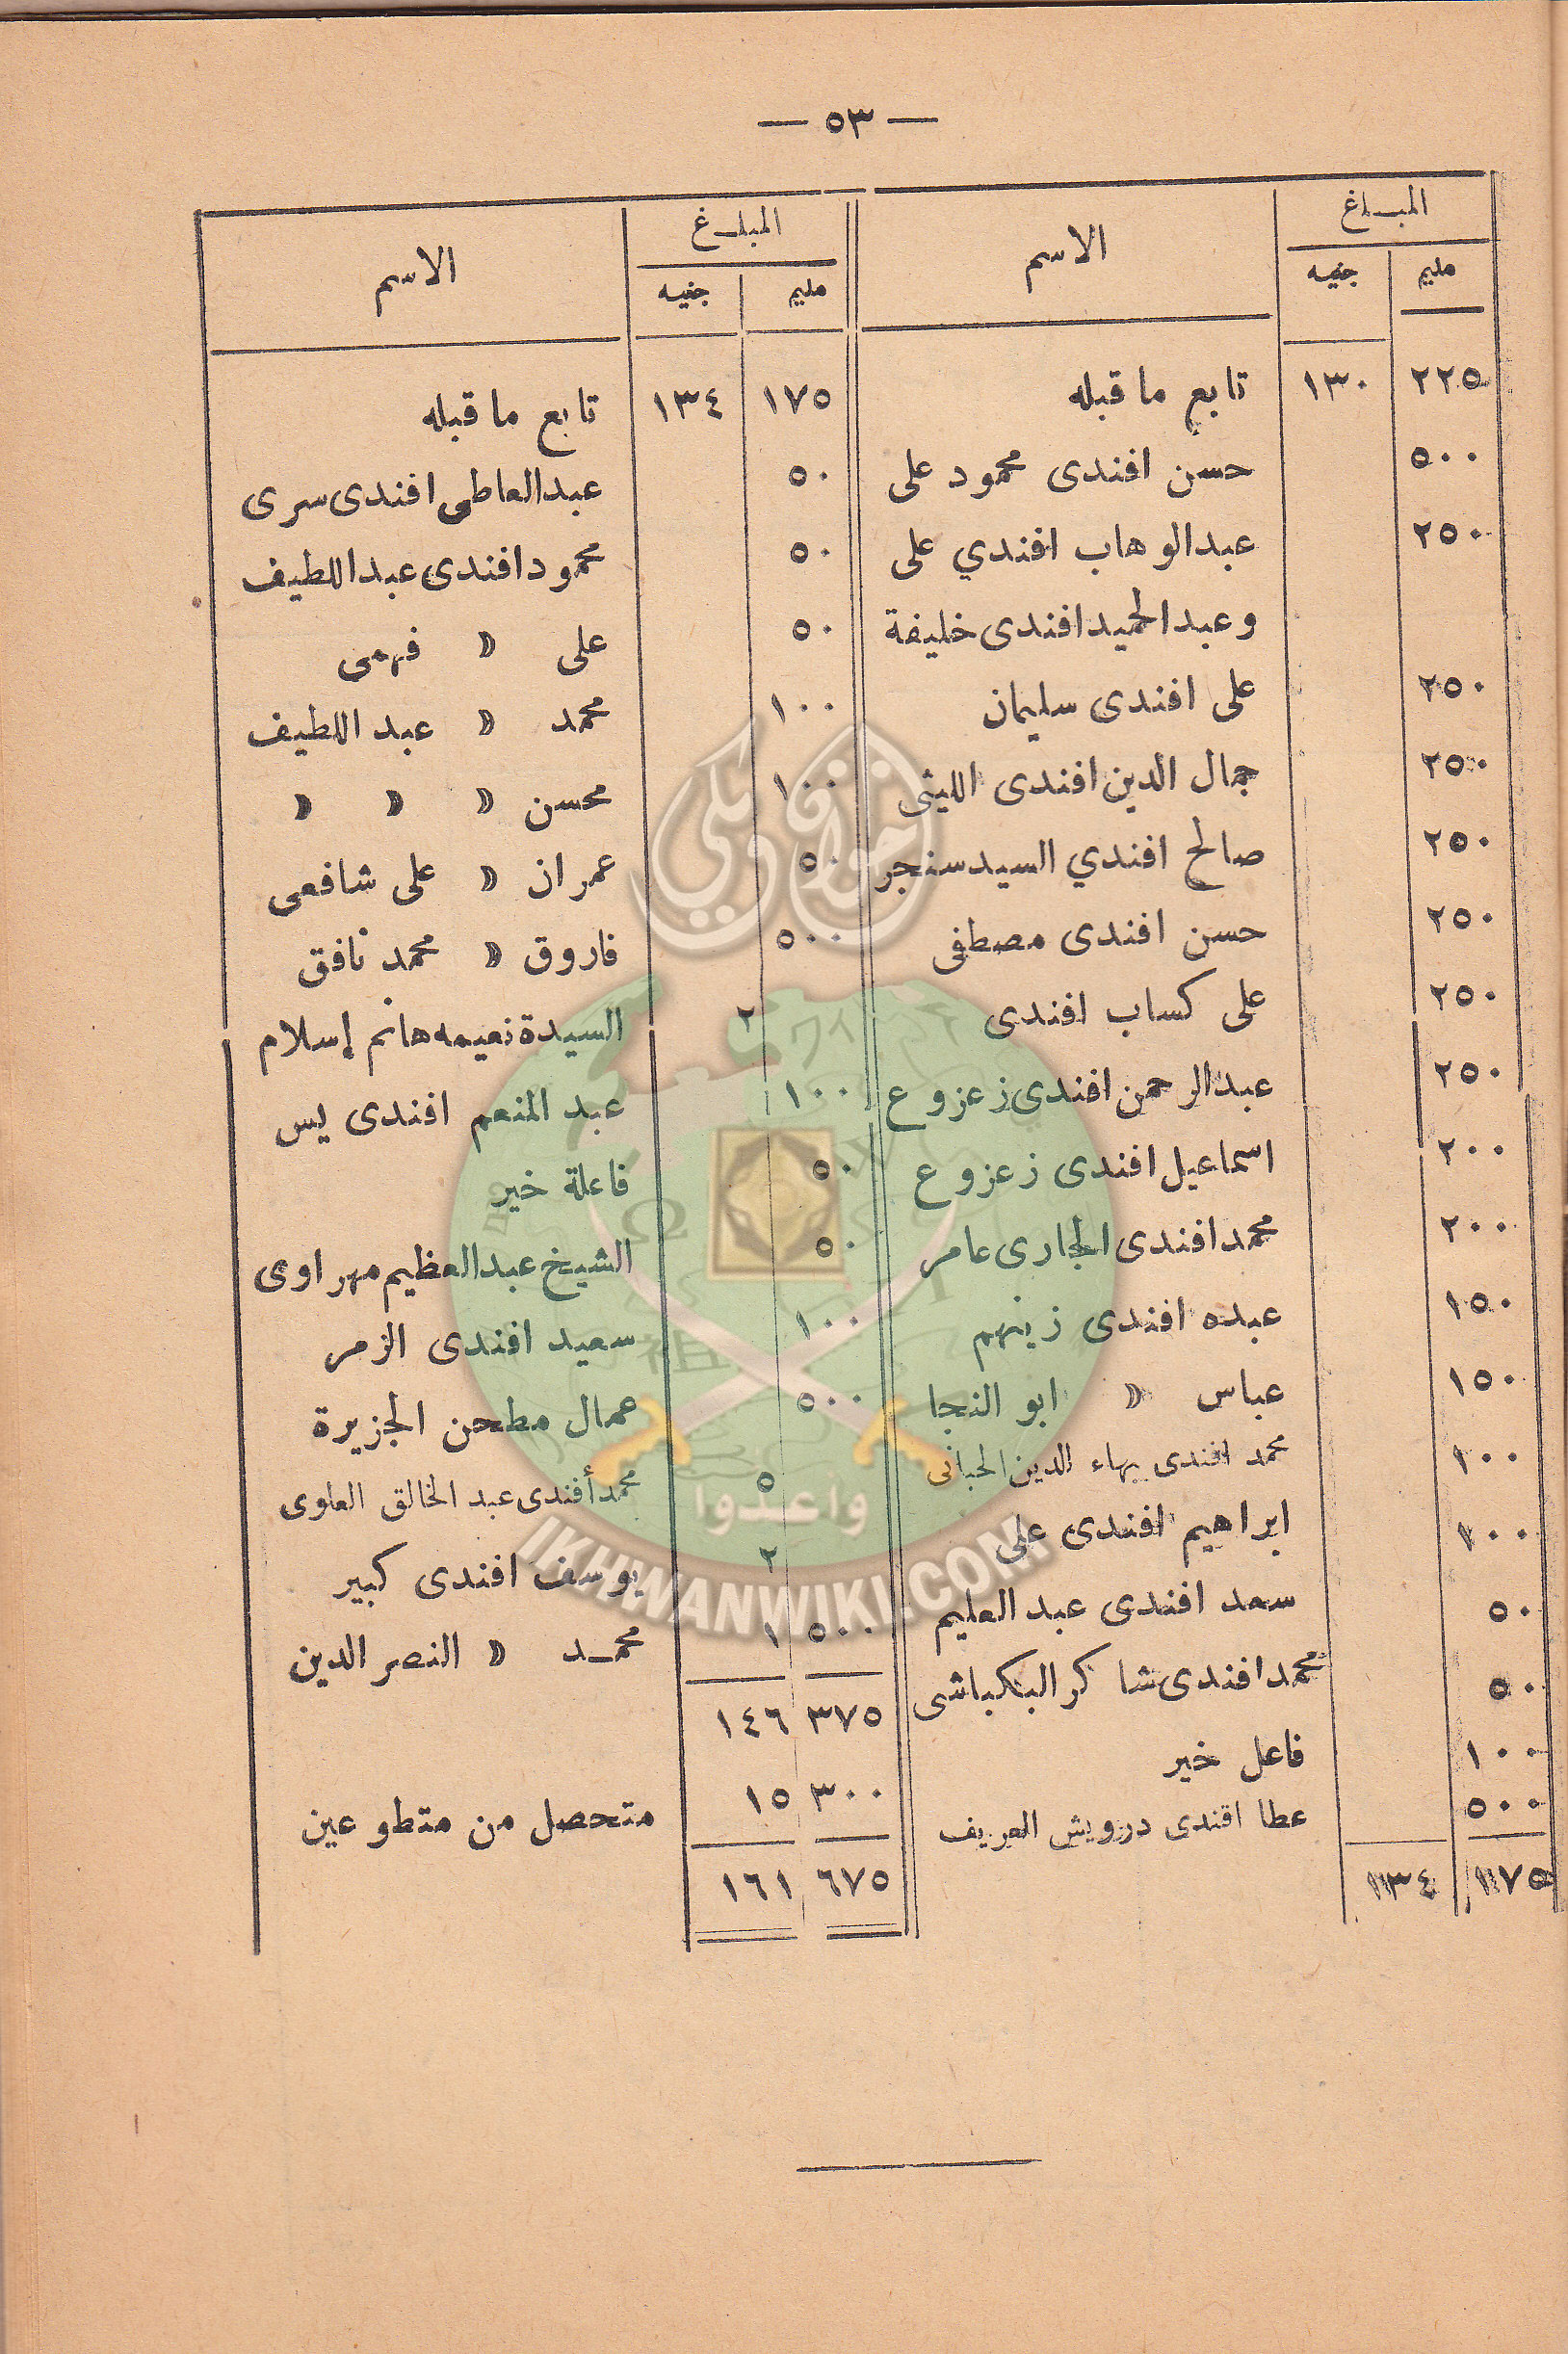 — ٥٣ —
المبلغ الاسم
مليم جنيه
٢٢٥ ١٣٠ تابع ما قبله
٥٠٠ حسن افندى محمود على
٢٥٠ عبدالوهاب افندي على
وعبدالحميد افندى خليفة
٢٥٠ على افندى سليمان
٢٥٠ جمال الدين افندى الليثى
٢٥٠ صالح افندي السيد سنجر
٢٥٠ حسن افندى مصطفى
٢٥٠ على كساب افندى
٢٥٠ عبدالرحمن افندى زعزوع
٢٠٠ اسماعيل افندى زعزوع
٢٠٠ محمد افندى الجارى عامر
١٥٠ عبده افندى زينهم
١٥٠ عباس » ابو النجا
١٠٠ محمد افندى بهاء الدين الحبانى
١٠٠ ابراهيم افندى على
٥٠ سعد افندى عبد العليم
٥٠ محمد افندى شاكر البكباشى
١٠٠ فاعل خير
٥٠٠ عطا افندى درويش العريف
١٧٥ ١٣٤
المبلغ الاسم
مليم جنيه
١٧٥ ١٣٤ تابع ما قبله
٥٠ عبدالعاطى افندى سرى
٥٠ محمود افندى عبد اللطيف
٥٠ على » فهمى
١٠٠ محمد » عبد اللطيف
١٠٠ محسن » » »
٥٠ عمران » على شافعى
٥٠٠ فاروق » محمد نافق
٢ السيدة نعيمه هانم إسلام
١٠٠ عبد المنعم افندى يس
٥٠ فاعلة خير
٥٠ الشيخ عبد العظيم مهراوى
١٠٠ سعيد افندى الزمر
٥٠٠ عمال مطحن الجزيرة
٥ محمد أفندى عبد الخالق العلوى
٢ يوسف افندى كبير
٥٠٠ ١ محمد » النصر الدين
٣٧٥ ١٤٦
٣٠٠ ١٥ متحصل من متطوعين
٦٧٥ ١٦١
إخوان ويكي
وأعدوا
IKHWANWIKI.COM